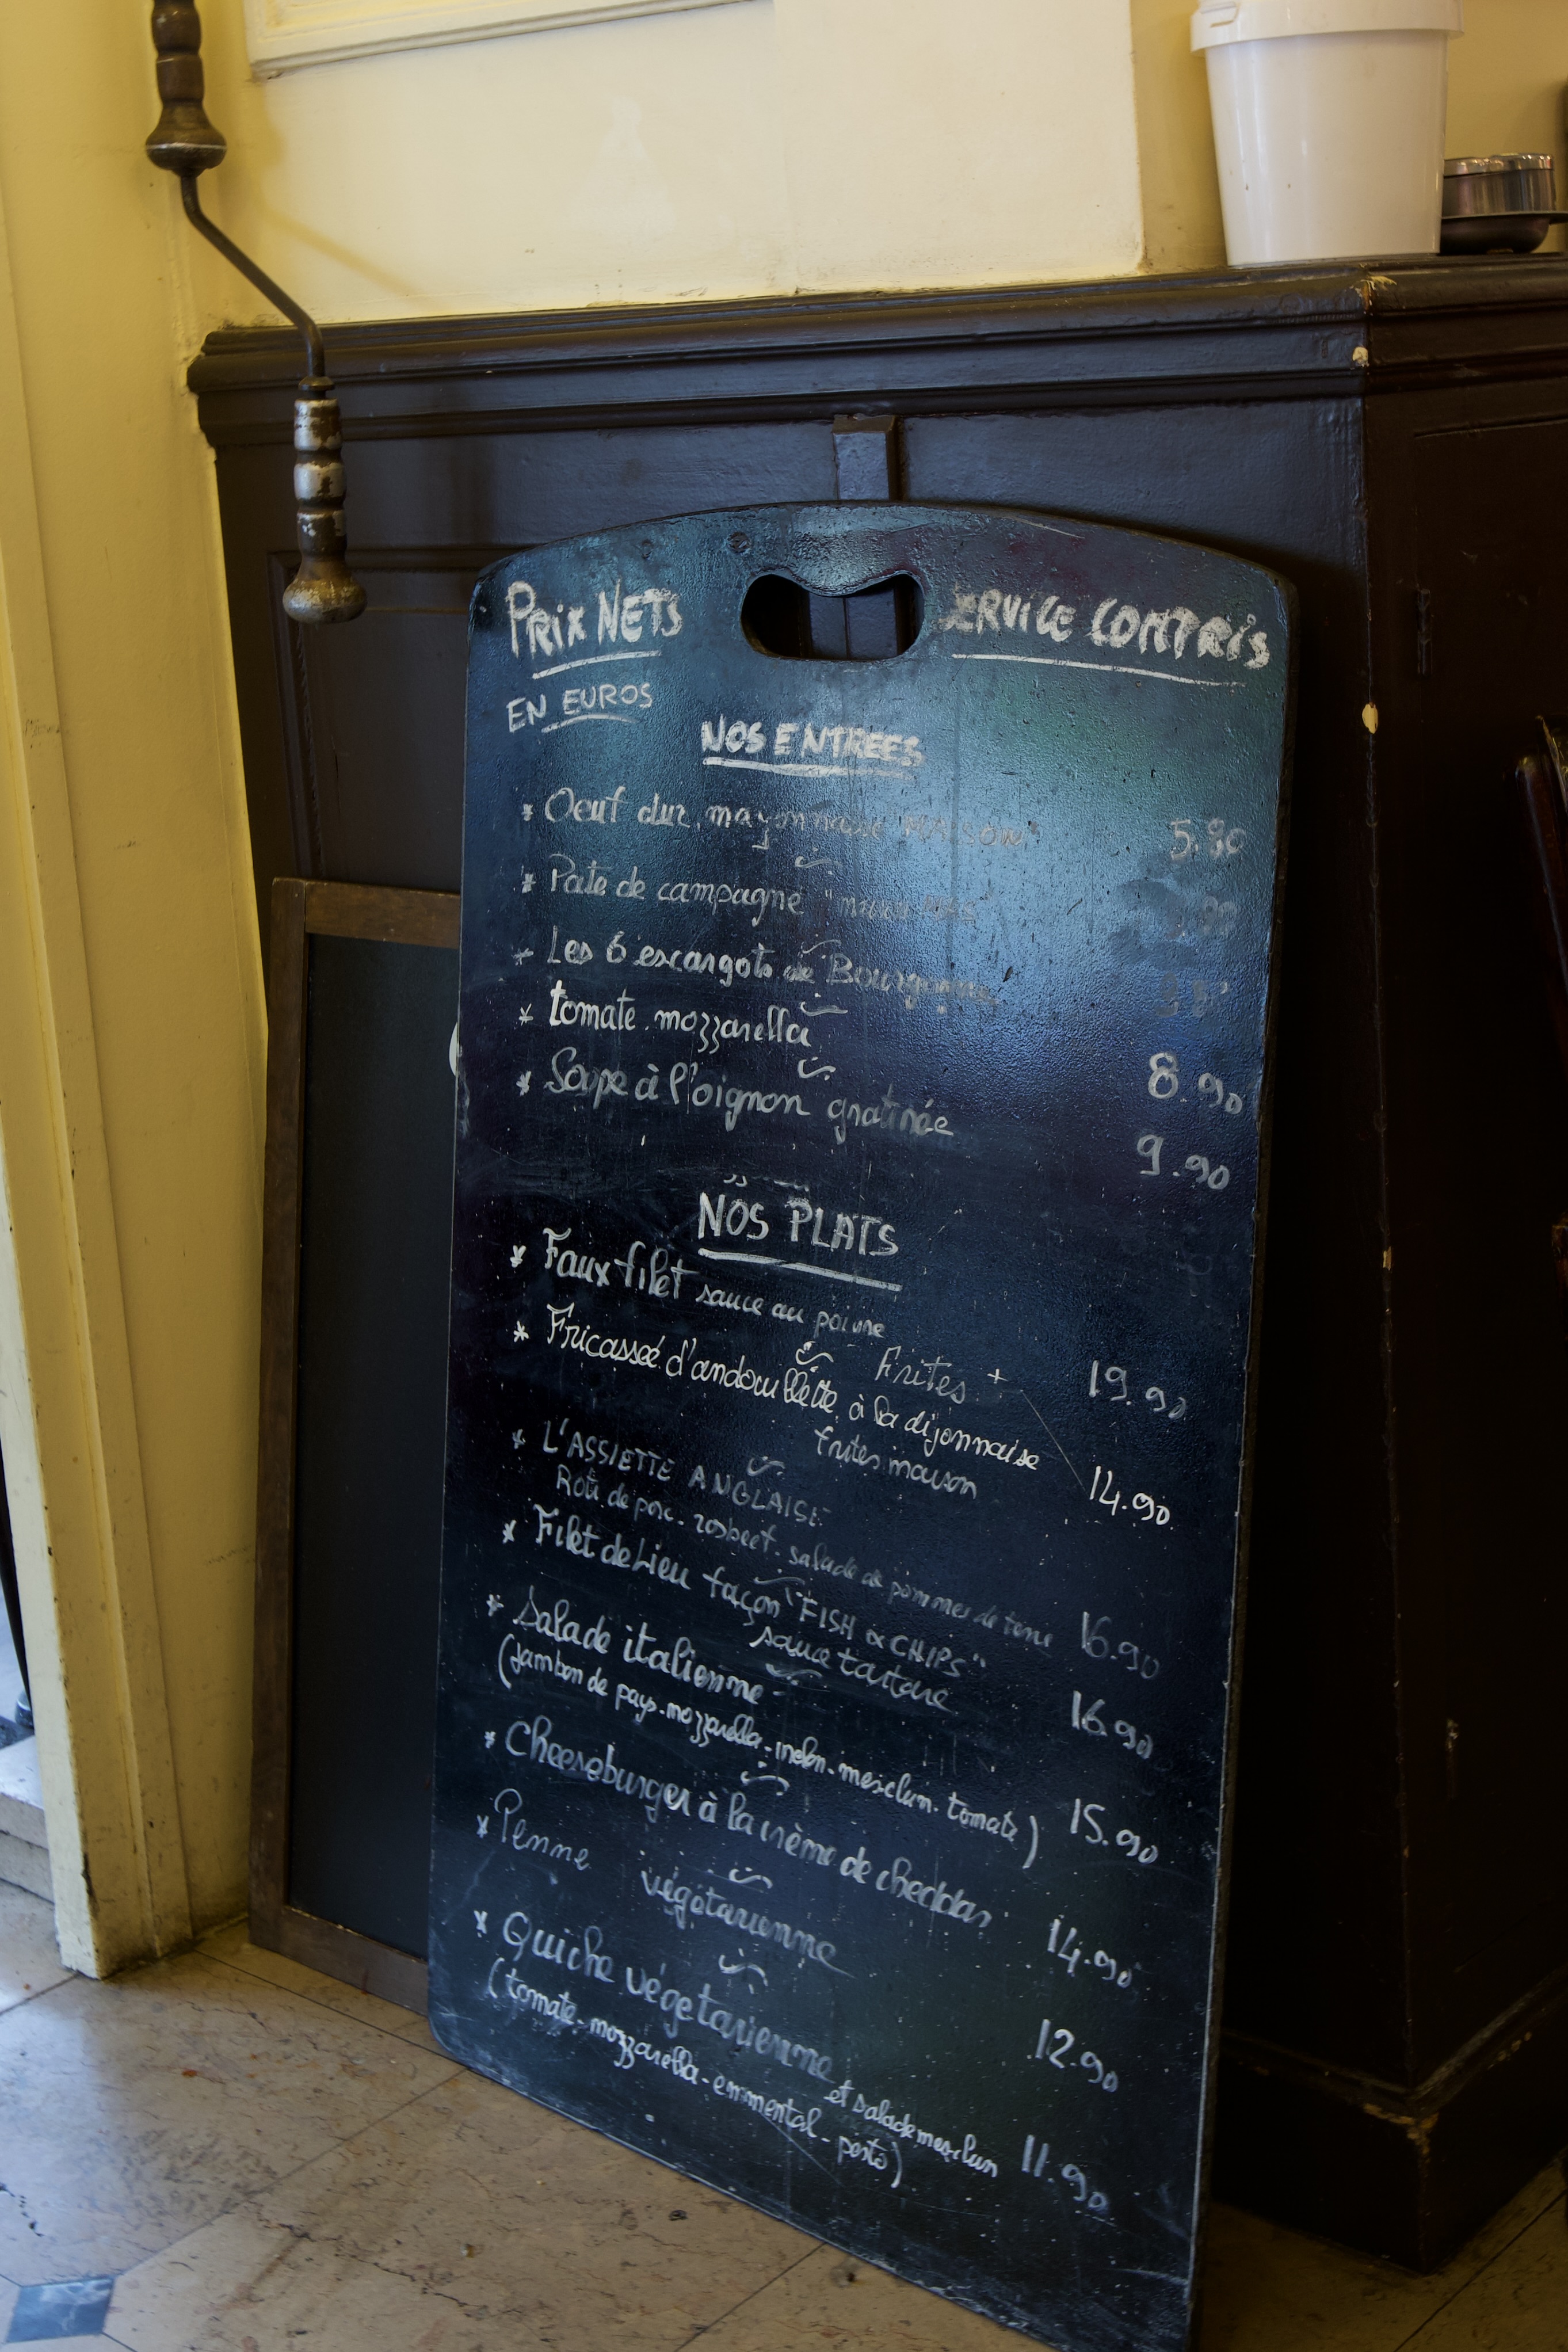 PRIX NETS
SERVICE COMPRIS
EN EUROS
NOS ENTREES
* Oeuf dur, mayonnaise "MAISON" 5.80
* Pate de campagne
* Les 6 escargots de Bourgogne
* tomate. mozzarella 8.90
* Soupe à l'oignon gratinée 9.90
NOS PLATS
* Faux filet sauce au poivre
Frites + 19.90
* Fricasseé d'andouillette à la dijonnaise
frites maison 14.90
* L'ASSIETTE ANGLAISE
Roti de porc. rosbeef. salade de pommes de terre 16.90
* Filet de Lieu façon "FISH & CHIPS"
sauce tartare 16.90
* Salade italienne
(Jambon de pays. mozzarella. melon. mesclun. tomate) 15.90
* Cheeseburger à la crème de cheddar 14.90
* Penne végétarienne 12.90
* Quiche végetarienne et salade mesclun 11.90
(tomate. mozzarella - emmental - pesto)